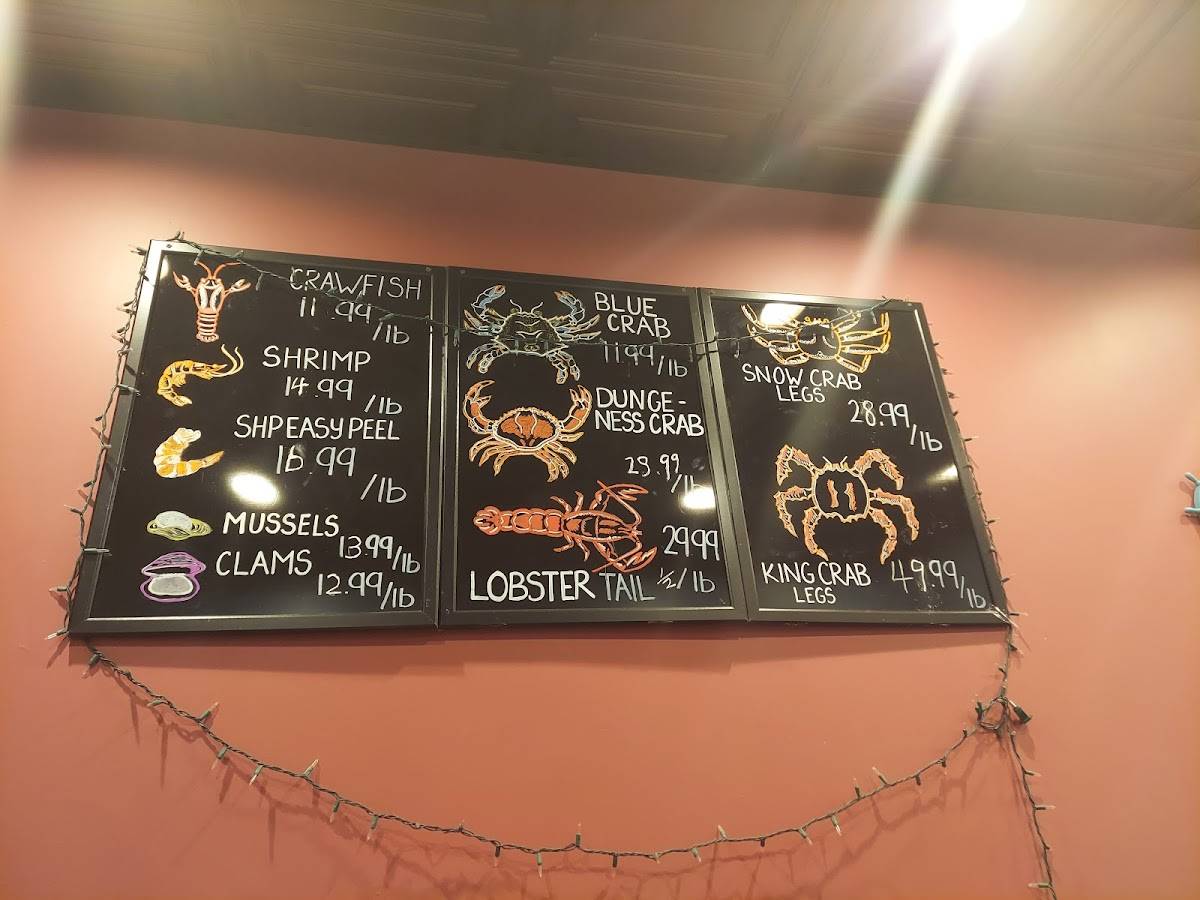 CRAWFISH
11.99
/lb
SHRIMP
14.99
/lb
SHP EASY PEEL
16.99
/lb
MUSSELS
13.99/lb
CLAMS
12.99/lb
BLUE
CRAB
11.99/lb
DUNGE-
NESS CRAB
/lb
2999
LOBSTER TAIL 1/2/lb
SNOW CRAB
LEGS
28.99
/lb
KING CRAB 49.99/lb
LEGS